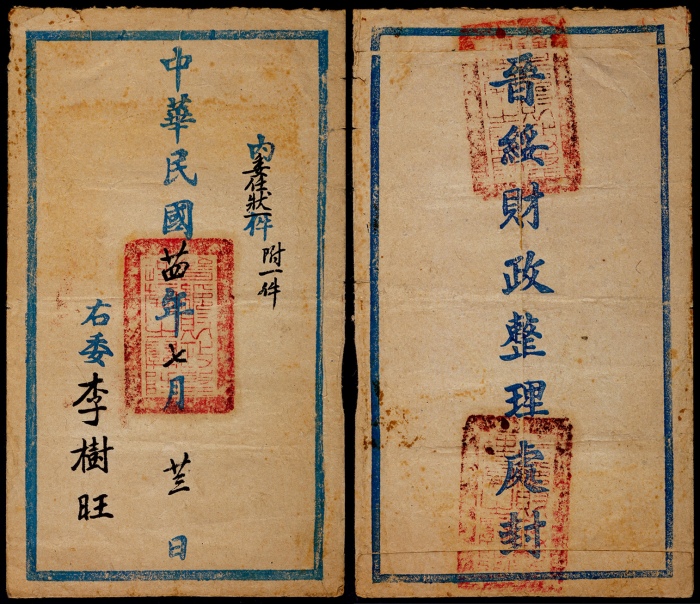 晉綏財政整理處封
内委任狀一件 附一件
中華民國廿四年七月廿三日
右委李樹旺